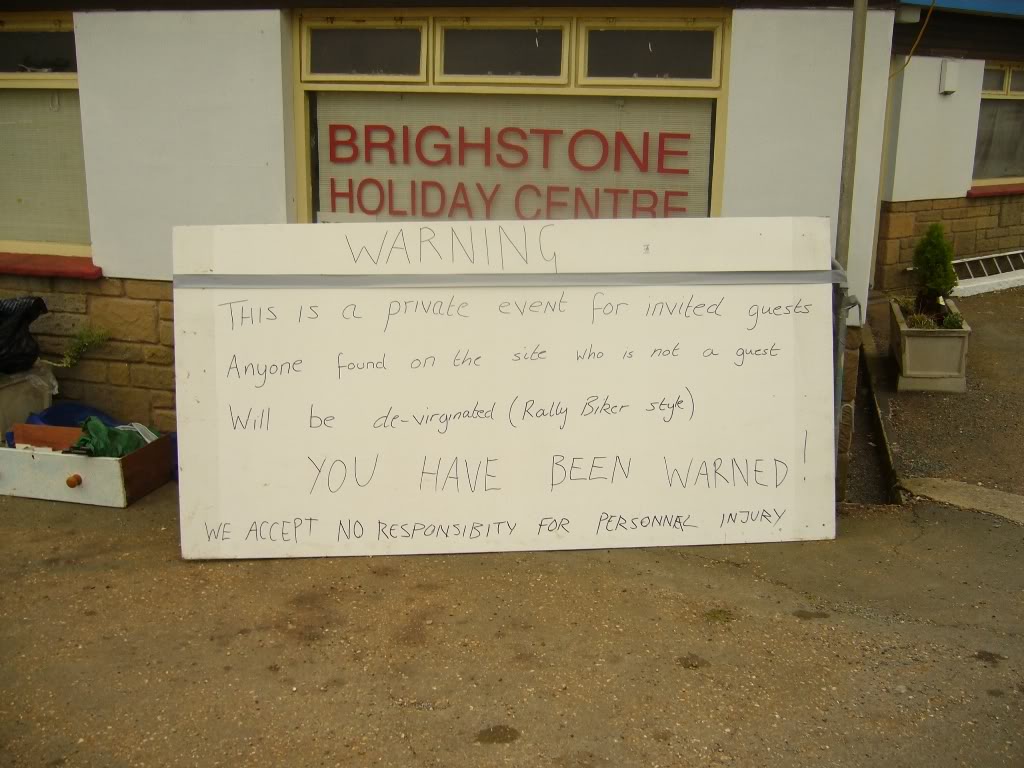 BRIGHSTONE
HOLIDAY CENTRE
WARNING
THIS IS a private event for invited guests
Anyone found on the site who is not a guest
Will be de-virginated (Rally Biker style)
YOU HAVE BEEN WARNED!
WE ACCEPT NO RESPONSIBITY FOR PERSONNAL INJURY